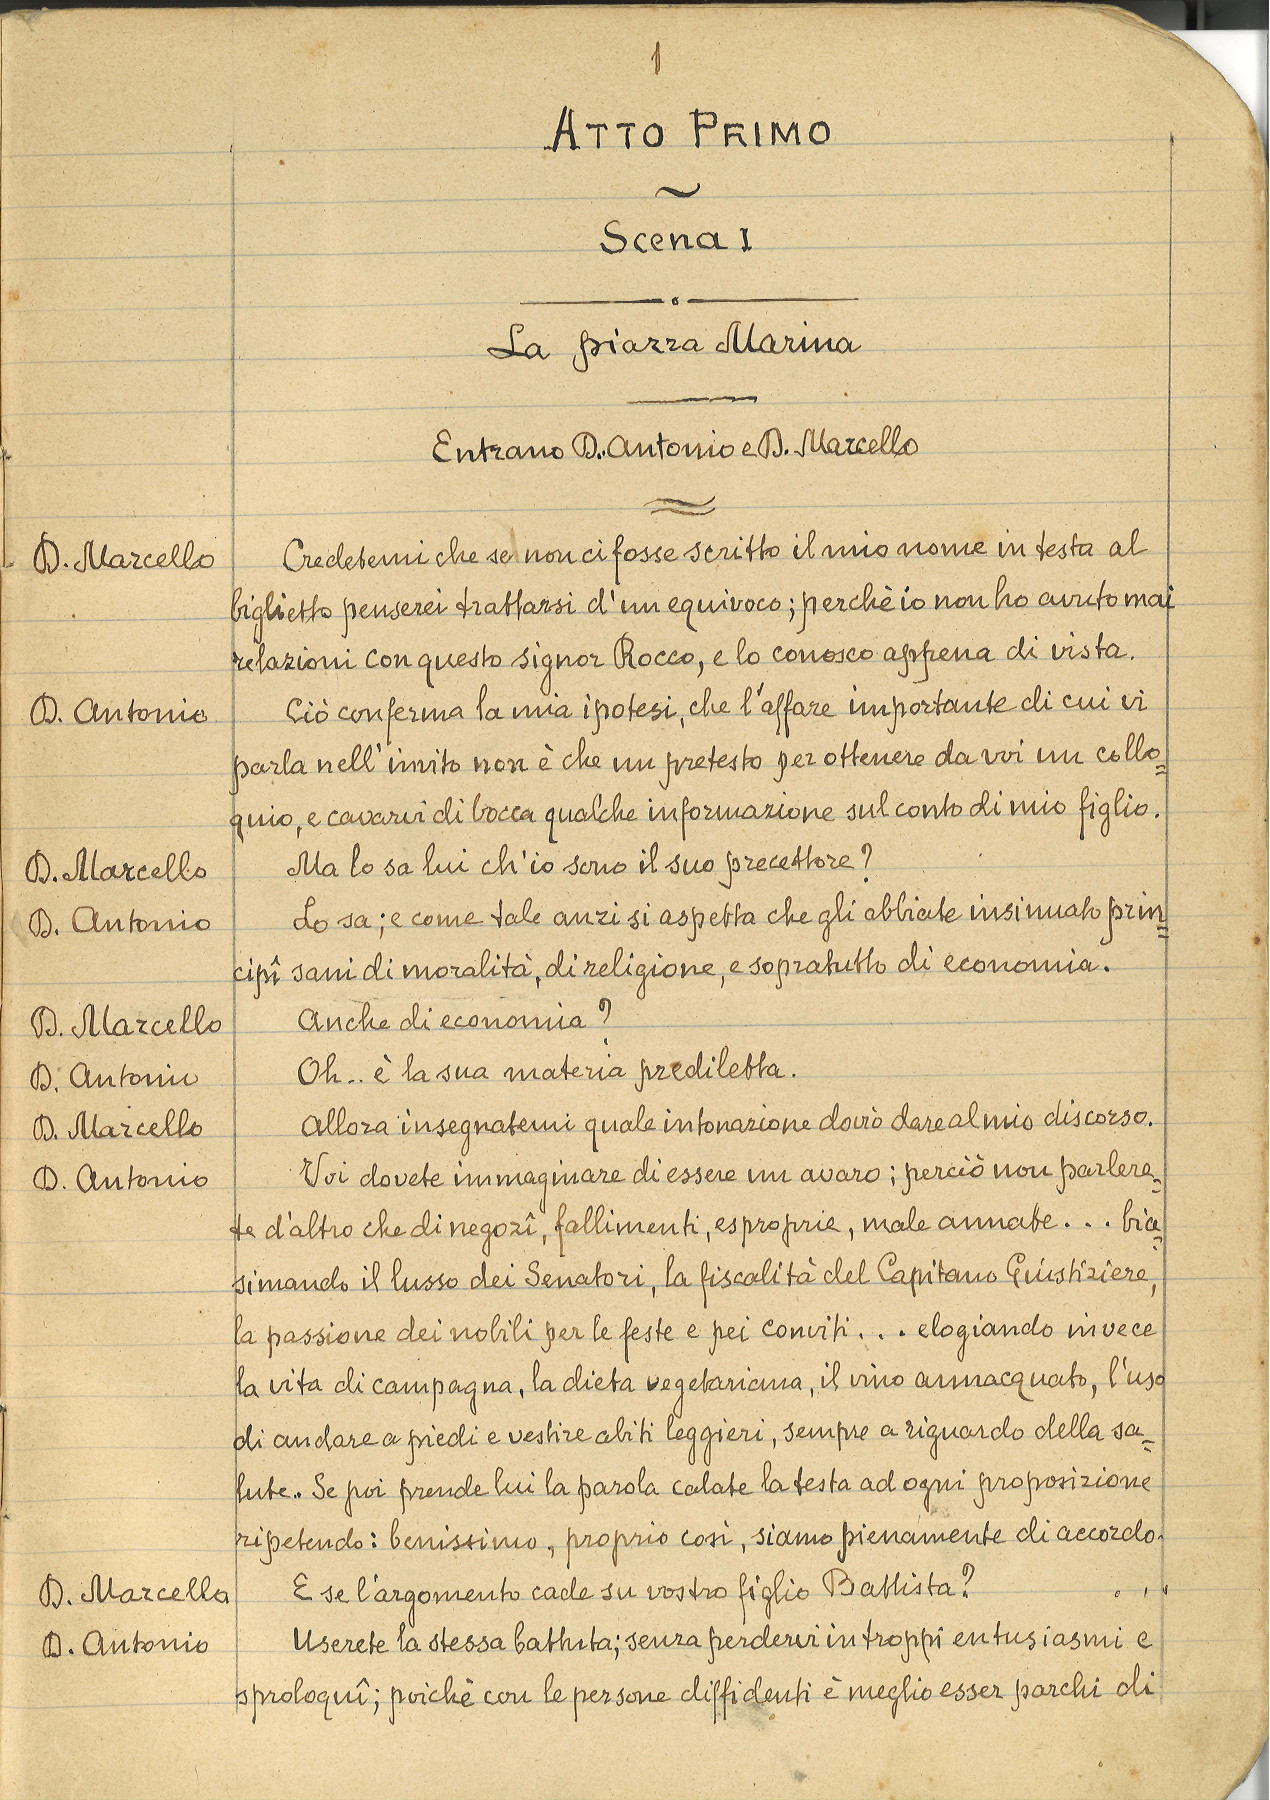 1
ATTO PRIMO
Scena I
La piazza Marina
Entrano D. Antonio e D. Marcello
D. Marcello Credetemi che se non ci fosse scritto il mio nome in testa al
biglietto penserei trattarsi d'un equivoco; perchè io non ho avuto mai
relazioni con questo signor Rocco, e lo conosco appena di vista.
D. Antonio Ciò conferma la mia ipotesi, che l'affare importante di cui vi
parla nell'invito non è che un pretesto per ottenere da voi un collo=
quio, e cavarvi di bocca qualche informazione sul conto di mio figlio.
D. Marcello Ma lo sa lui ch'io sono il suo precettore?
D. Antonio Lo sa; e come tale anzi si aspetta che gli abbiate insinuato prin=
cipî sani di moralità, di religione, e sopratutto di economia.
D. Marcello Anche di economia?
D. Antonio Oh.. è la sua materia prediletta.
D. Marcello Allora insegnatemi quale intonazione dovrò dare al mio discorso.
D. Antonio Voi dovete immaginare di essere un avaro; perciò non parlere=
te d'altro che di negozî, fallimenti, esproprie, male annate... bia=
simando il lusso dei Senatori, la fiscalità del Capitano Giustiziere,
la passione dei nobili per le feste e pei conviti... elogiando invece
la vita di campagna, la dieta vegetariana, il vino annacquato, l'uso
di andare a piedi e vestire abiti leggieri, sempre a riguardo della sa=
lute.. Se poi prende lui la parola calate la testa ad ogni proposizione
ripetendo: benissimo, proprio così, siamo pienamente di accordo.
D. Marcello E se l'argomento cade su vostro figlio Battista?
D. Antonio Userete la stessa battuta; senza perdervi in troppi entusiasmi e
sproloquî; poichè con le persone diffidenti è meglio esser parchi di